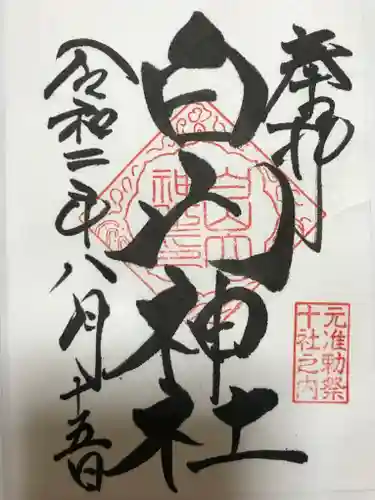 奉拝
白山神社
令和二年八月十五日
元准勅祭
十社之内